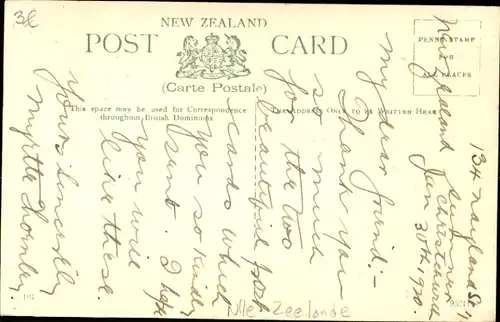 3£
NEW ZEALAND
POST CARD
(Carte Postale)
This space may be used for Correspondence
throughout British Dominions
THE ADDRESS ONLY TO BE WRITTEN HERE
PENNY STAMP
PLACES
134 Nayland St,
Sumner
Christchurch
New Zealand
Jan 30th, 1920.
My dear friend:-
Thank you
so much
for the two
beautiful post
cards which
you so kindly
sent. I hope
you will
like these.
Yours Sincerely
Myrtle Hornby.
Nlle Zeelande